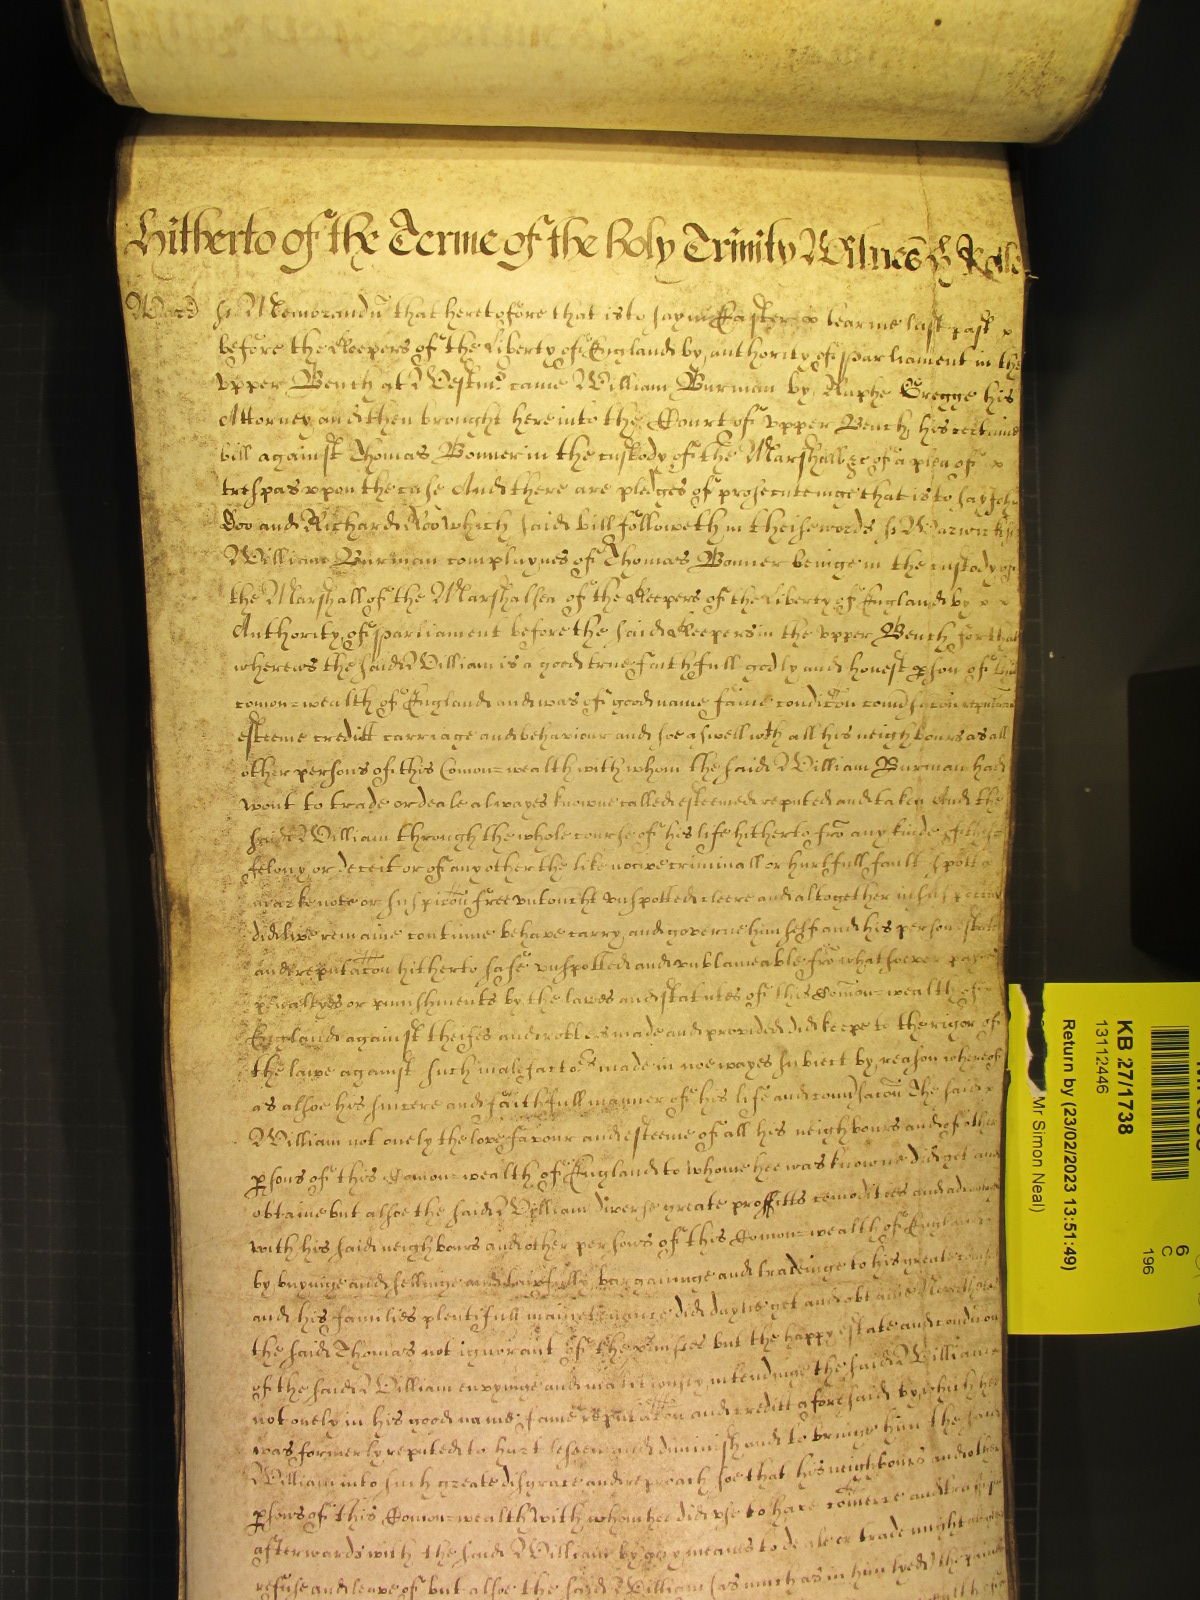 Hitherto of the Terme of the holy Trinity Witnes H Rolle
Warr ss Memorandu that heretofore that is to say in Easter tearme last past
before the Keepers of the Liberty of England by authority of parliament in the
upper Bench at Westmr came William Burman by Raphe Gregge his
Attorney and then brought here into the Court of upper Bench his certaine
bill against Thomas Bonner in the custody of the Marshall &c of a plea of
trespas upon the case And there are pledges of prosecuteinge that is to say John
Doo and Richard Roo which said bill followeth in theise words ss Warwick ss
William Burman complaynes of Thomas Bonner beinge in the custody of
the Marshall of the Marshalsea of the Keepers of the Liberty of England by
Authority of parliament before the said Keepers in the upper Bench for that
whereas the said William is a good true faithfull godly and honest pson of this
comon=wealth of England and was of good name fame condicon convsacon reputacon
esteeme creditt carriage and behaviour and soe aswell wth all his neighbours as all
other persons of this Comon=wealth with whom the said William Burman had
wont to trade or deale alwayes knowne called esteemed reputed and taken And the
said William through the whole course of his life hitherto fro any kinde of theft
felony or deceit or of any other the like nocive criminall or hurtfull fault spott
marke note or suspicon free untoucht unspotted cleere and altogether
did live remaine continue behave carry and governe himself and his person estate
and reputacon hitherto safe unspotted and unblameable fro whatsoever paynes
penaltyes or punishments by the lawes and statutes of this Comon=wealth of
England against theifes and robbers made and provided did keepe to the rigor of
the lawe against such malefactors made in noe wayes subiect by reason whereof
as alsoe his sincere and faithfull manner of his life and convsacon the said
William not onely the love favour and esteeme of all his neighbours and of other
psons of this Comon=wealth of England to whome hee was knowne did get and
obtaine but alsoe the said William diverse greate proffitts comodities and advantages
with his said neighbours and other persons of this Comon=wealth of England
by buyinge and sellinge and lawfully bargaininge and tradeinge to his greate
and his families plentifull maintenance did dayly get and obtaine Neverthelesse
the said Thomas not ignorant of the pmisses but the happy estate and condicon
of the said William envyinge and malitiously intendinge the said William
not onely in his good name fame reputacon and creditt aforesaid by which hee
was formerly reputed to hurt lessen and diminish and to bringe him the said
William into such greate disgrace and reproach soe that his neighbours and other
psons of this Comon=wealth with whom hee did use to have comerce and
afterwards with the said William by any meanes to deale or trade might
refuse and leave of but alsoe the said William (as much as in him lyed)
KB 27/1738
13112446
Return by (23/02/2023 13:51:49)
Mr Simon Neal)
6
C
196